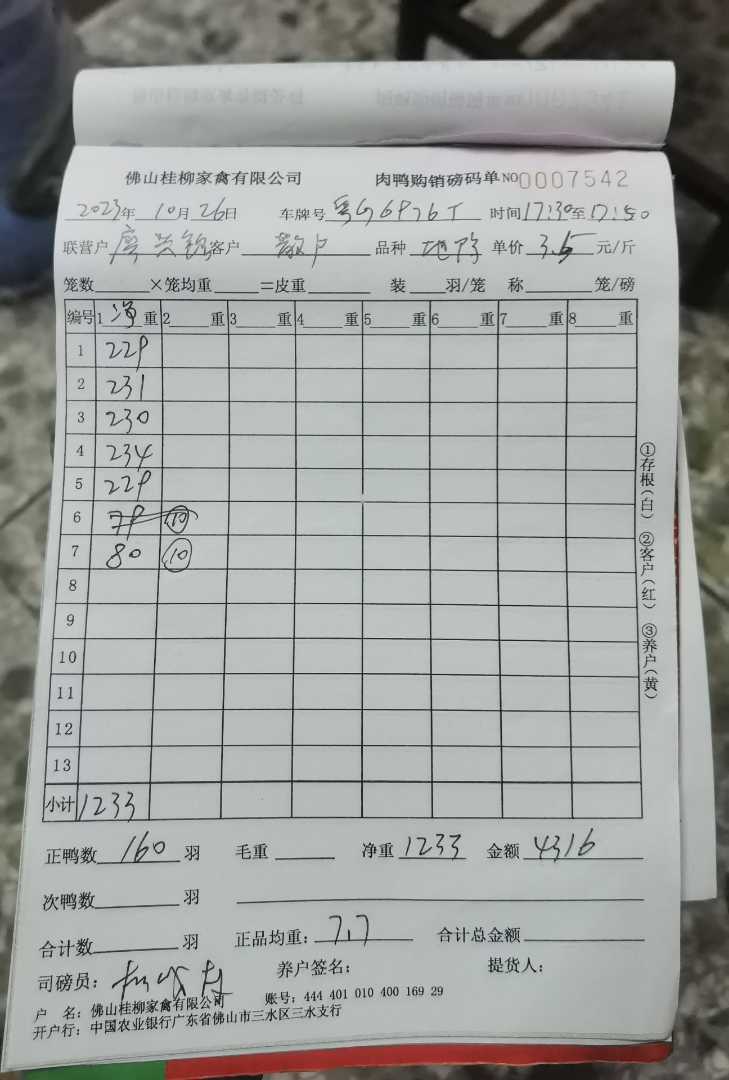 佛山桂柳家禽有限公司 肉鸭购销磅码单 NO 0007542
2023年 10月 26日 车牌号 时间 17:30至17:50
联营户 客户 散户 品种 单价 3.5 元/斤
笼数 ×笼均重 =皮重 装 羽/笼 称 笼/磅
编号 1 净 重 2 重 3 重 4 重 5 重 6 重 7 重 8 重
1 229
2 231
3 230
4 234
5 229
6 79 10
7 80 10
8
9
10
11
12
13
小计 1233
①存根(白) ②客户(红) ③养户(黄)
正鸭数 160 羽 毛重 净重 1233 金额 4316
次鸭数 羽
合计数 羽 正品均重: 7.7 合计总金额
司磅员: 养户签名: 提货人:
户 名: 佛山桂柳家禽有限公司 账号: 444 401 010 400 169 29
开户行: 中国农业银行广东省佛山市三水区三水支行